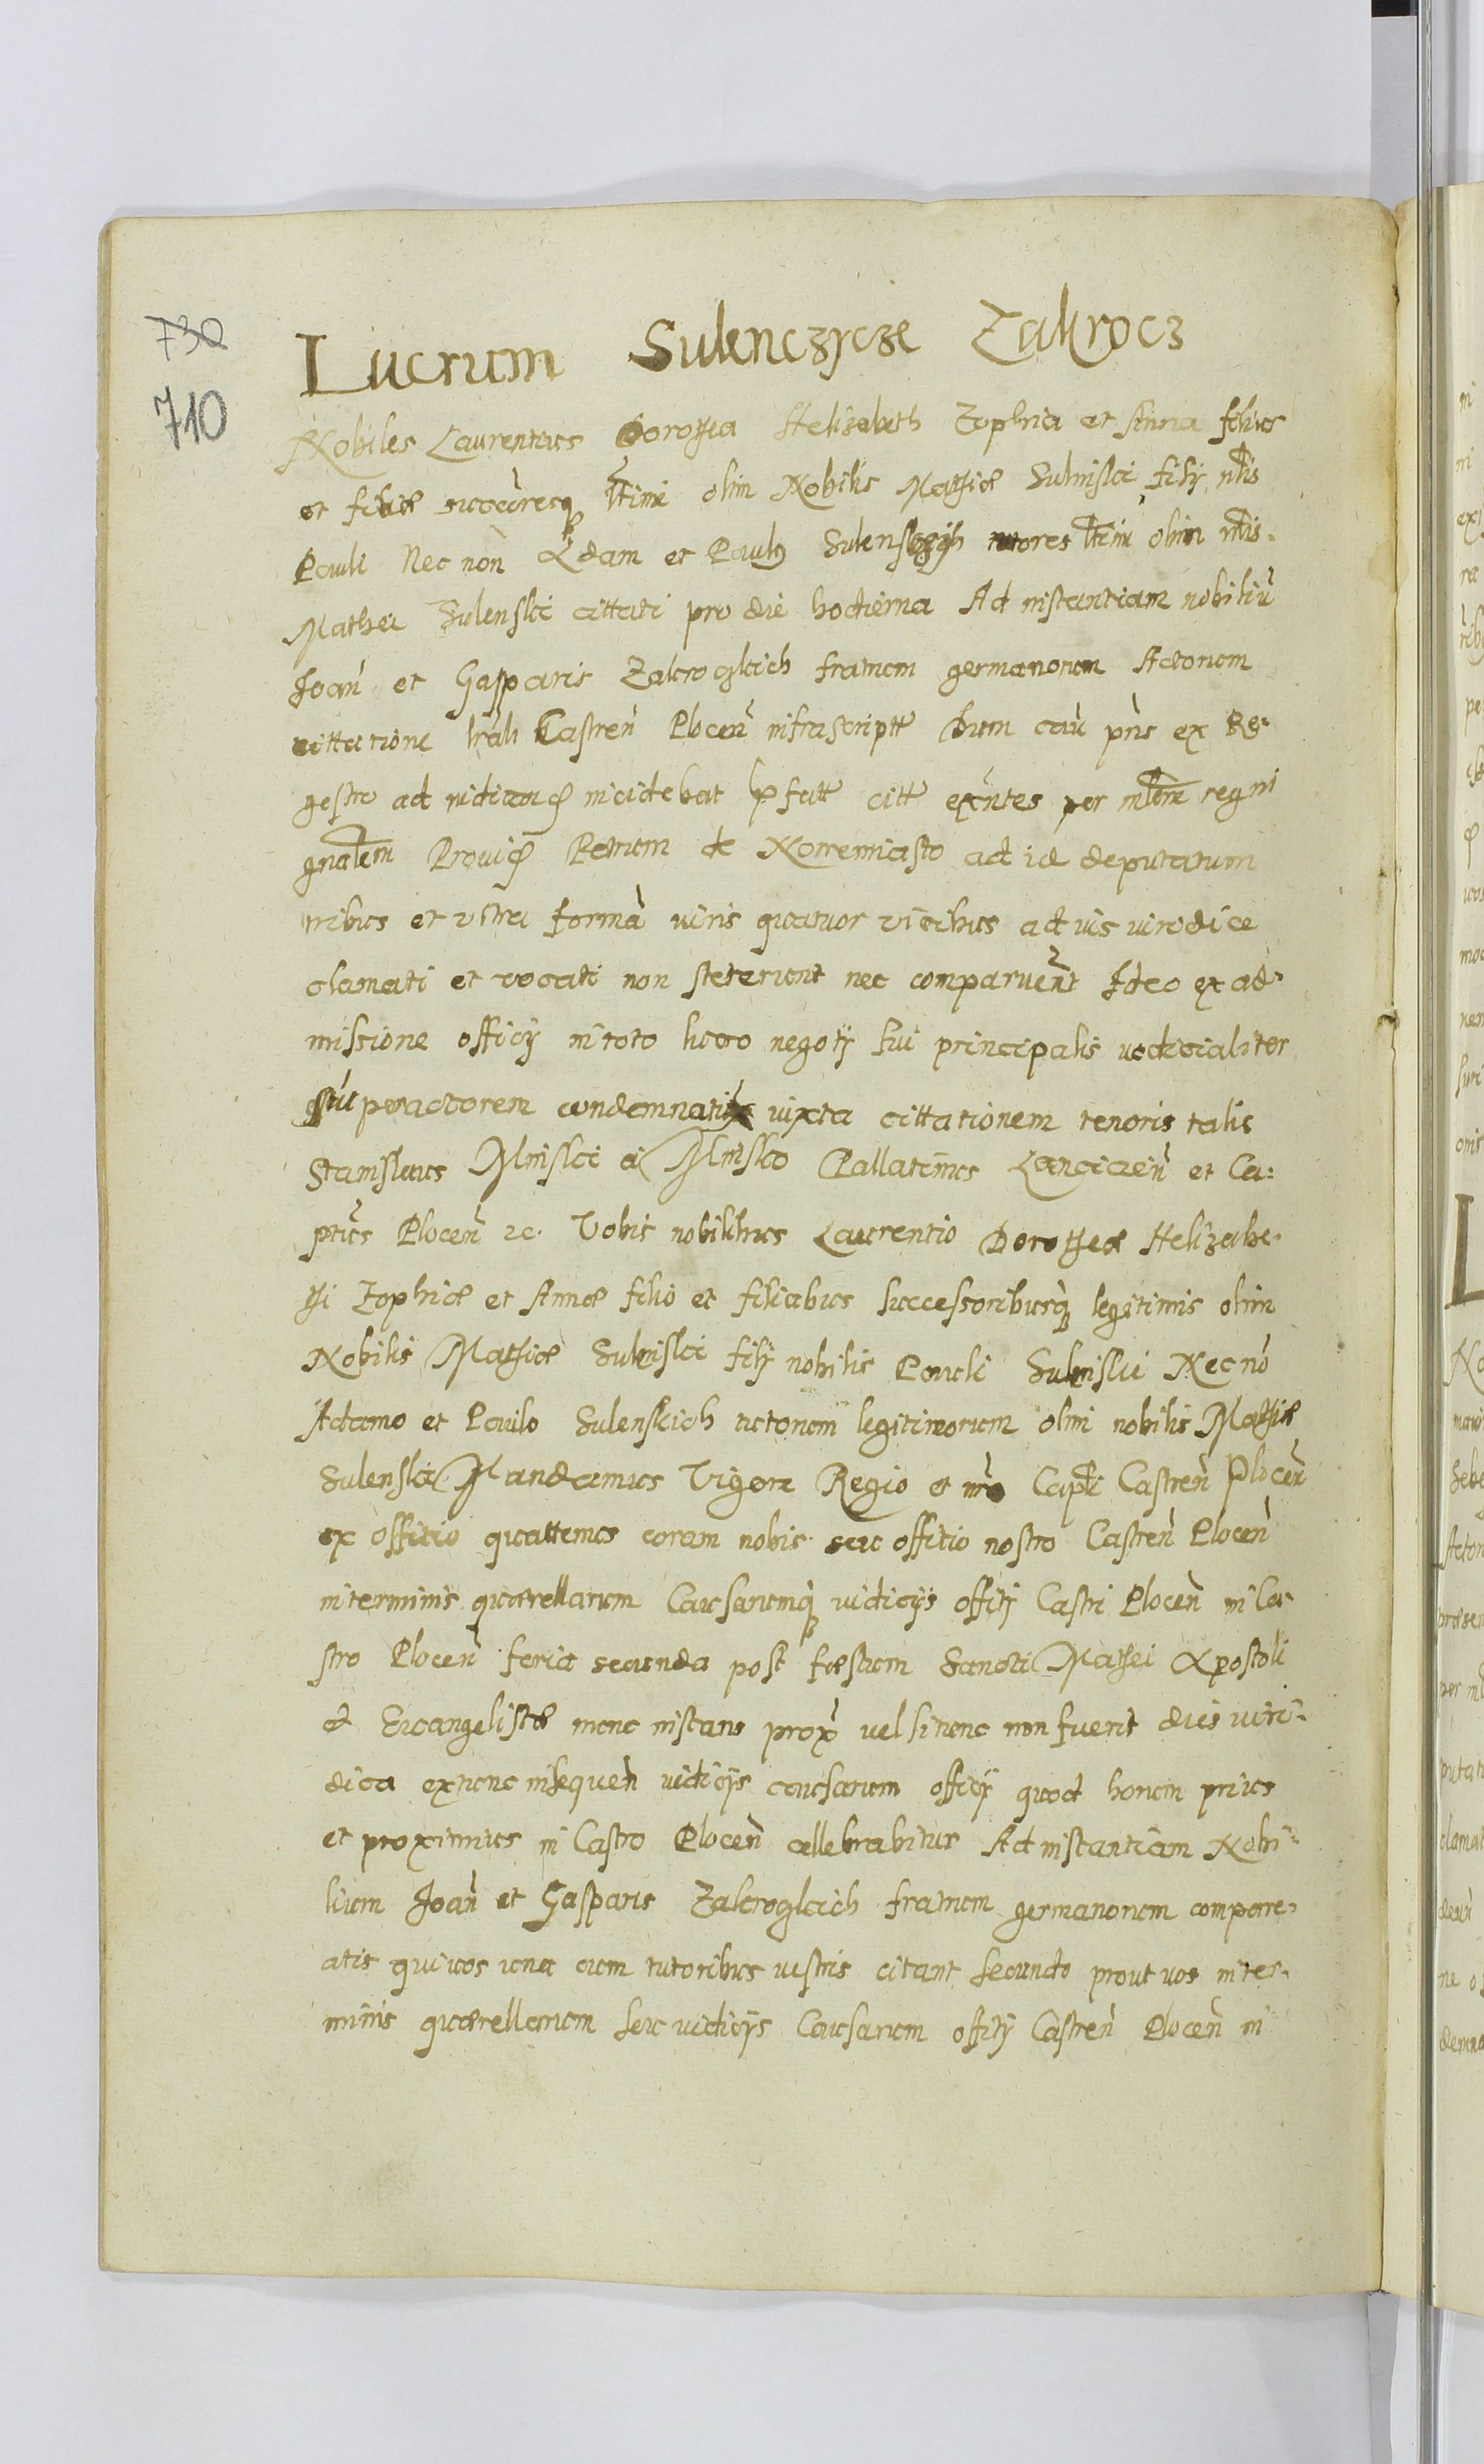 730
710
Lucrum Sulenczycze Zakrocz
Nobiles Laurentius Dorothea Helizabeth Zophia et Anna filius
et filiæ succũresq̃ lt̃imi olim Nobilis Mathiæ Sulinski filij nlis
Pauli Nec non Adam et Paulus tutores lt̃imi olim nlis
Mathei Sulenski cittati pro die hodierna Ad instantiam nobiliũ
Joañ et Gasparis Zakroczkich fratrum germanorum Actorum
cittatione lr̃ali Castreñ Ploceñ infrascriptt Dum cau p̃ns ex Re-
gestro ad iudicand incidebat p̃fatt citt ex̃ntes per mlr̃m regni
gnalem Provid Petrum de Nowemiasto ad id deputatum
tribus et vltra formã iuris quatuor vicibus ad vis iuridice
clamati et vocati non steterunt nec comparuerũt Ideo ex ad-
missione officij in toto lucro negotij sui principalis iudicialiter
per actorem condemnati iuxta cittationem tenoris talis
Stanislaus Minski a Minsko Pallatinus Lanciciẽn et Ca-
pt̃us Ploceñ zc. Vobis nobilibus Laurentio Dorotheæ Helizabe-
thi Zophiæ et Annæ filio et filiabus successoribusq̃ legitimis olim
Nobilis Mathiæ Sulinski filij nobilis Pauli Sulinski Nec nõ
Adamo et Paulo Sulenskich tutorum legitimorum olim nobilis Mathiæ
Sulenski Mandamus Vigore Regio et nr̃o Capt̃i Castreñ Ploceñ
ex offitio quattenus coram nobis seu offitio nostro Castreñ Ploceñ
in terminis quærellarum Causarumq̃ iudicijs offitij Castri Ploceñ in Ca-
stro Ploceñ feria secunda post fæstum Sancti Mathei Apostoli
et Euangelistæ nunc instans prox̃ vel si tunc non fuerit dies iuri-
dica extunc insequeñ iudicijs causarum officij quod horum prius
et proximius in Castro Ploceñ cellebrabitur Ad instantiam Nobi-
lium Joañ et Gasparis Zakroczkich fratrum germanorum compare-
atis qui vos una cum tutoribus vestris citant secundo prout vos in ter-
minis quærellarum seu iudicijs Causarum offitij Castreñ Ploceñ in